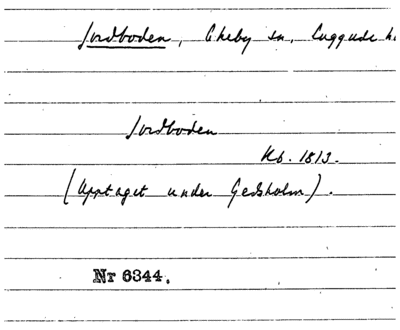 Jordboden, Ekeby sn, Luggude h
Jordboden
Kb. 1813.
(Upptaget under Gedsholm).
Nr 6344.